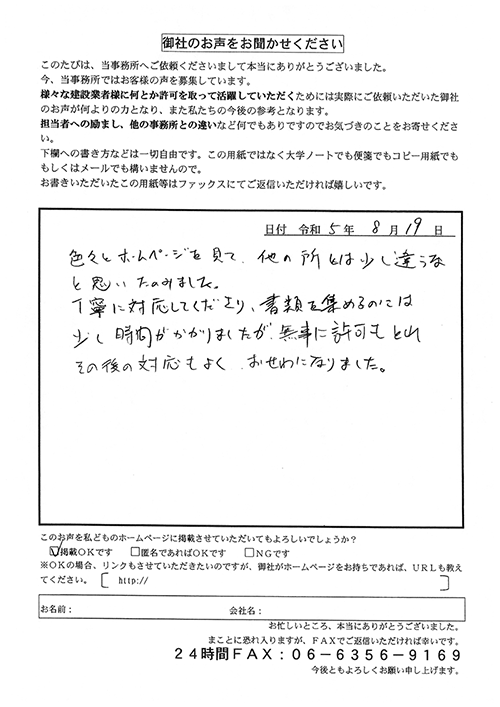 御社のお声をお聞かせください
このたびは、当事務所へご依頼くださいまして本当にありがとうございました。
今、当事務所ではお客様の声を募集しています。
様々な建設業者様に何とか許可を取って活躍していただくためには実際にご依頼いただいた御社
のお声が何よりの力となり、また私たちの今後の参考となります。
担当者への励まし、他の事務所との違いなど何でもありですのでお気づきのことをお寄せくださ
い。
下欄への書き方などは一切自由です。この用紙ではなく大学ノートでも便箋でもコピー用紙でも
もしくはメールでも構いませんので。
お書きいただいたこの用紙等はファックスにてご返信いただければ嬉しいです。
日付 令和 5 年 8 月 19 日
色々とホームページを見て、他の所とは少し違うな
と思いたのみました。
丁寧に対応してくださり、書類を集めるのには
少し時間がかかりましたが、無事に許可もとれ
その後の対応もよく、おせわになりました。
このお声を私どものホームページに掲載させていただいてもよろしいでしょうか？
☑掲載OKです □匿名であればOKです □NGです
※OKの場合、リンクもさせていただきたいのですが、御社がホームページをお持ちであれば、URLも教え
てください。[ http:// ]
お名前： 会社名：
お忙しいところ、本当にありがとうございました。
まことに恐れ入りますが、FAXでご返信いただければ幸いです。
24時間FAX：06－6356－9169
今後ともよろしくお願い申し上げます。